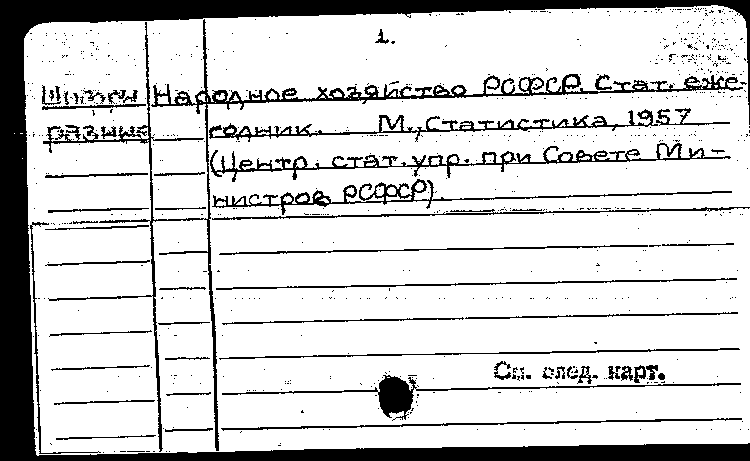 1.
Шифры Народное хозяйство РСФСР. Стат. еже-
разные годник. М., Статистика, 1957
(Центр. стат. упр. при Совете Ми-
нистров РСФСР).
См. след. карт.